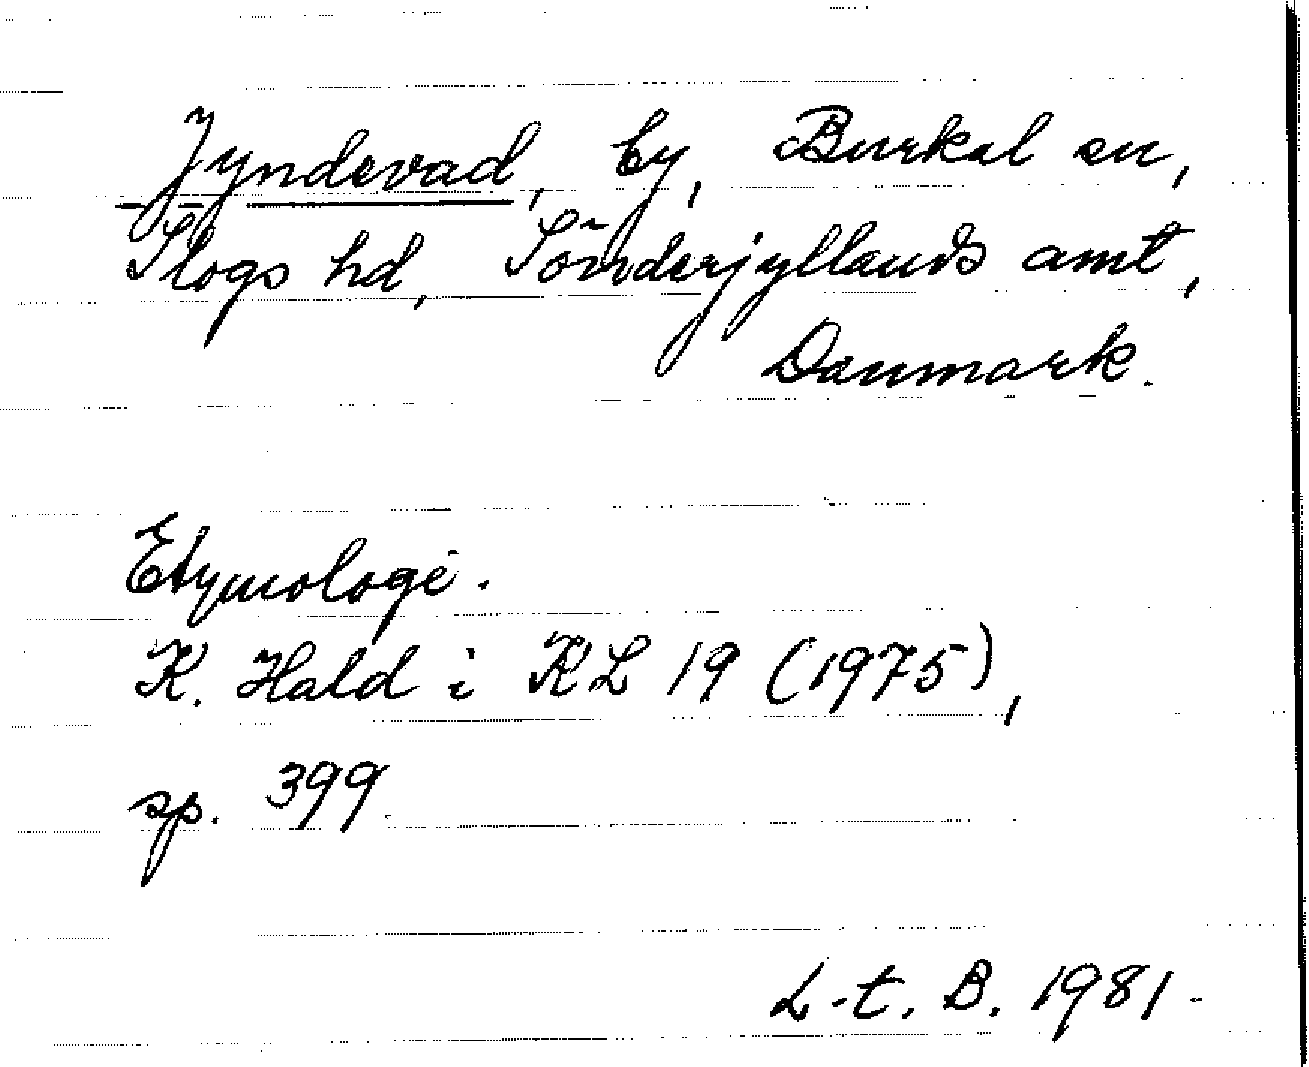 Jyndevad, by, Burkal sn,
Slogs hd, Sönderjyllands amt,
Danmark.
Etymologi.
K. Hald i KL 19 (1975),
sp. 399.
L-t. B. 1981.